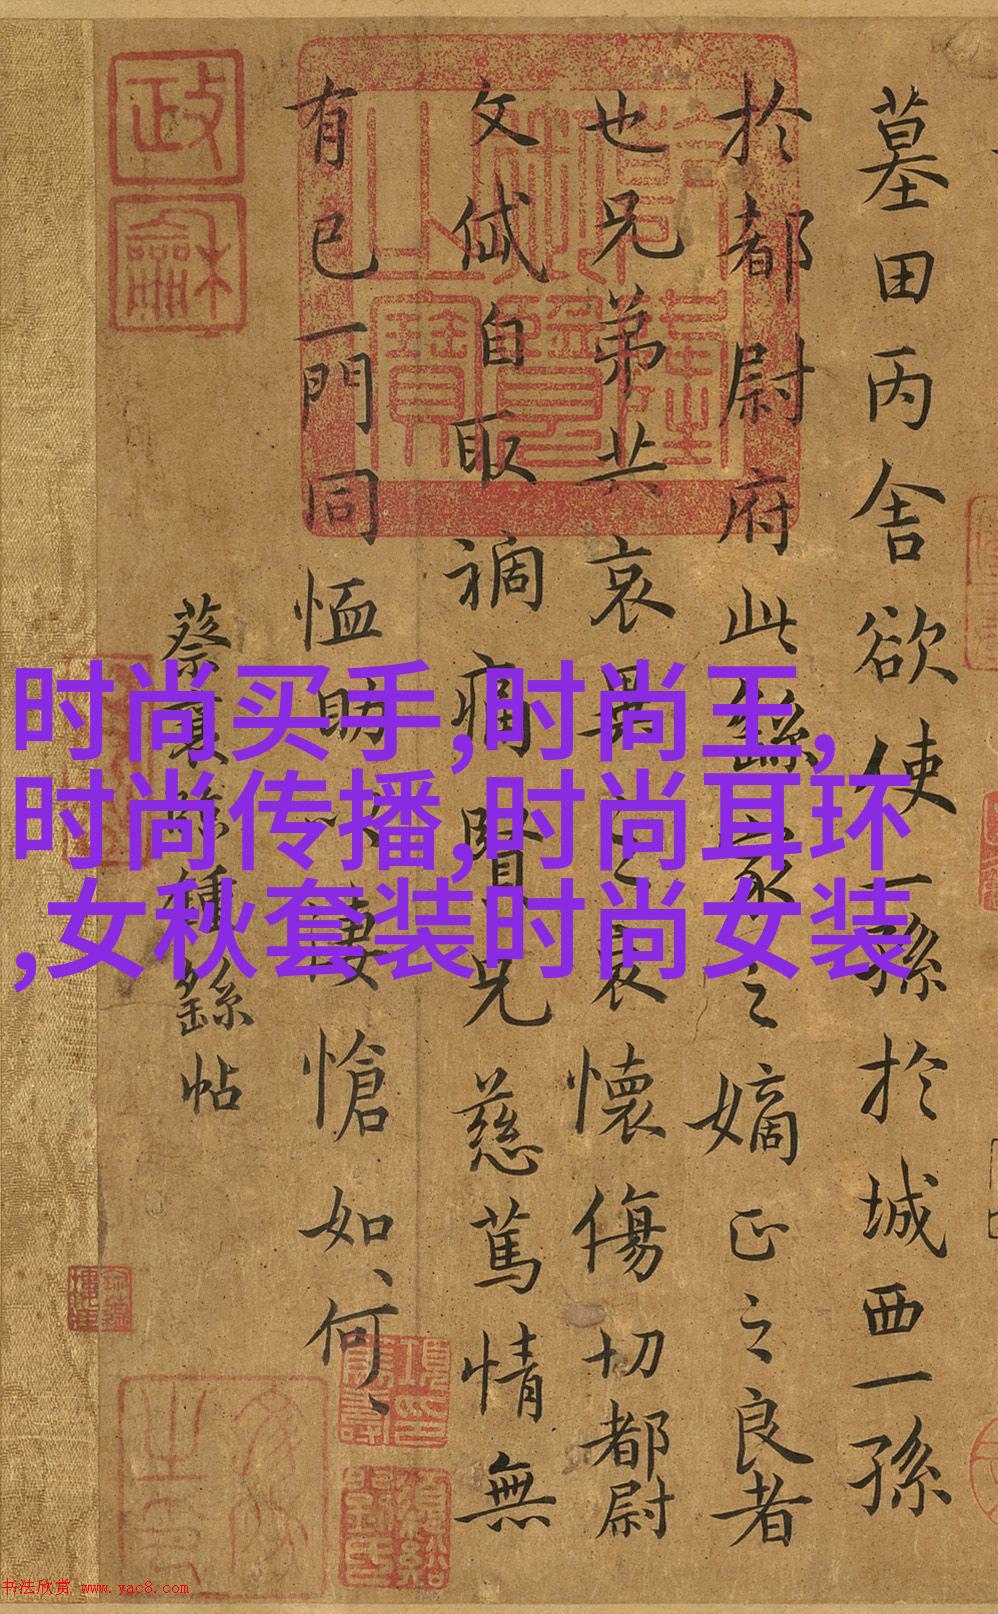 墓田丙舍欲使一孫於城西一孫
於都尉府此繇家之嫡正之良者
也兄弟共哀異之哀懷傷切都尉
文俶自取禍痛賢兄慈篤情無
有已一門同恤助以悽愴如何
蔡襄臨鍾繇帖
政
龢
时尚买手,时尚王,
时尚传播,时尚耳环
,女秋套装时尚女装
书法欣赏 www.yac8.com